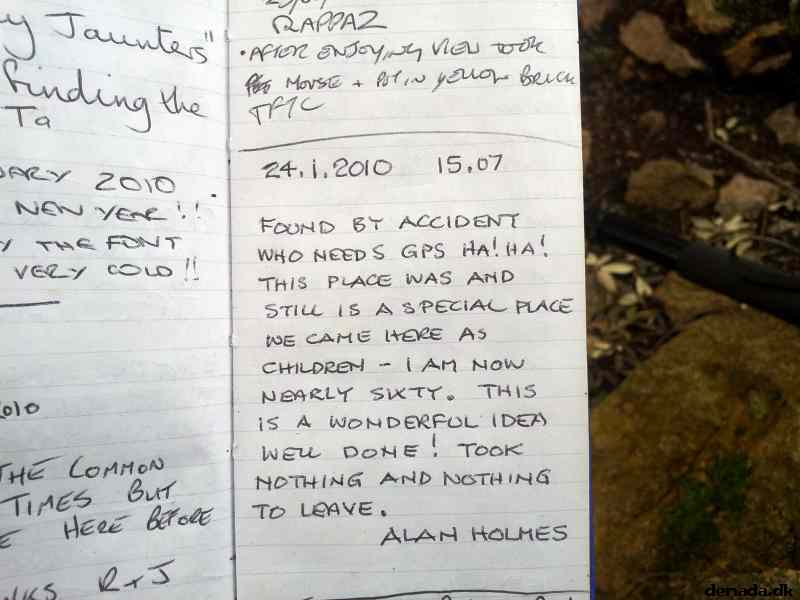 y Jaunters"
finding the
Ta
ARY 2010
NEW YEAR!!
Y THE FONT
VERY COLD!!
2010
THE COMMON
TIMES BUT
E HERE BEFORE
NKS R+J
RAPPAZ
• AFTER ENJOYING VIEW TOOK
MOUSE + PUT IN YELLOW BRICK
TFTC
24.1.2010 15.07
FOUND BY ACCIDENT
WHO NEEDS GPS HA! HA!
THIS PLACE WAS AND
STILL IS A SPECIAL PLACE
WE CAME HERE AS
CHILDREN - I AM NOW
NEARLY SIXTY. THIS
IS A WONDERFUL IDEA
WELL DONE! TOOK
NOTHING AND NOTHING
TO LEAVE.
ALAN HOLMES
denada.dk